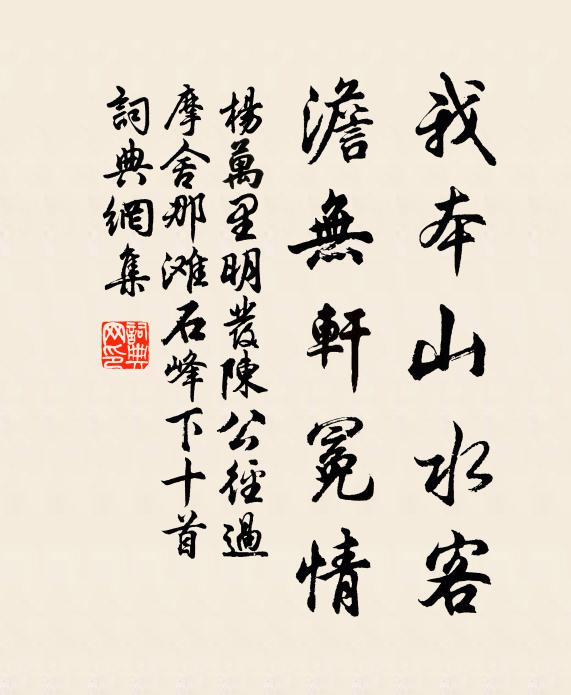 我本山水客
澹無軒冕情
楊萬里明發陳公徑過
摩舍那滩石峰下十首
詞典網集
詞典网印